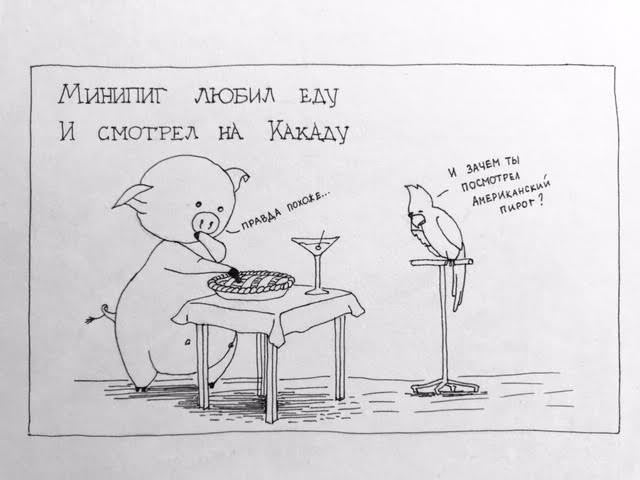 Минипиг любил еду
И смотрел на Какаду
правда похоже...
и зачем ты
посмотрел
Американский
пирог?